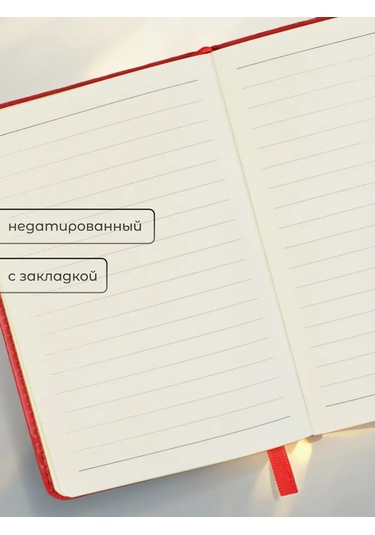 недатированный
с закладкой